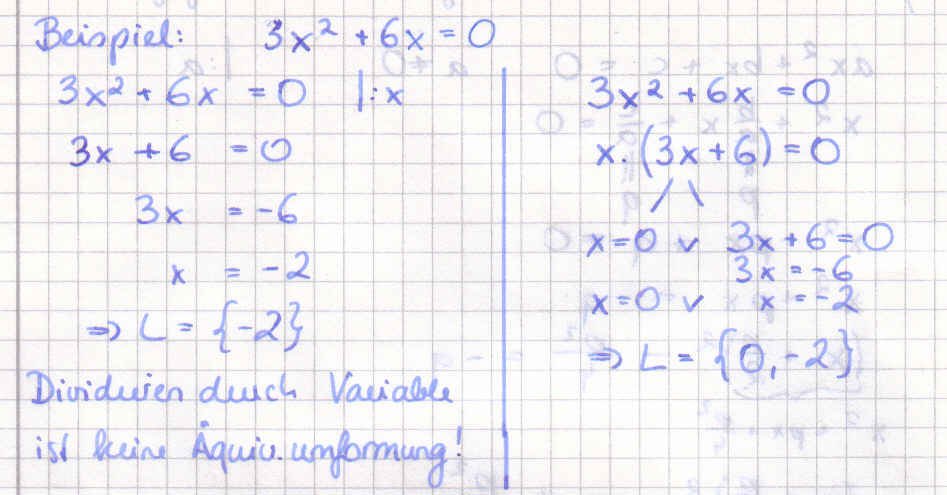 Beispiel: 3x² + 6x = 0
3x² + 6x = 0 |:x
3x + 6 = 0
3x = -6
x = -2
⇒ L = {-2}
Dividieren durch Variable
ist keine Äquiv.umformung!
3x² + 6x = 0
x·(3x+6) = 0
x=0 ∨ 3x+6=0
3x = -6
x=0 ∨ x = -2
⇒ L = {0,-2}